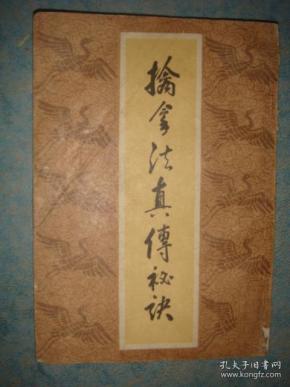 擒拿法真傳祕訣
孔夫子旧书网
kongfz.com